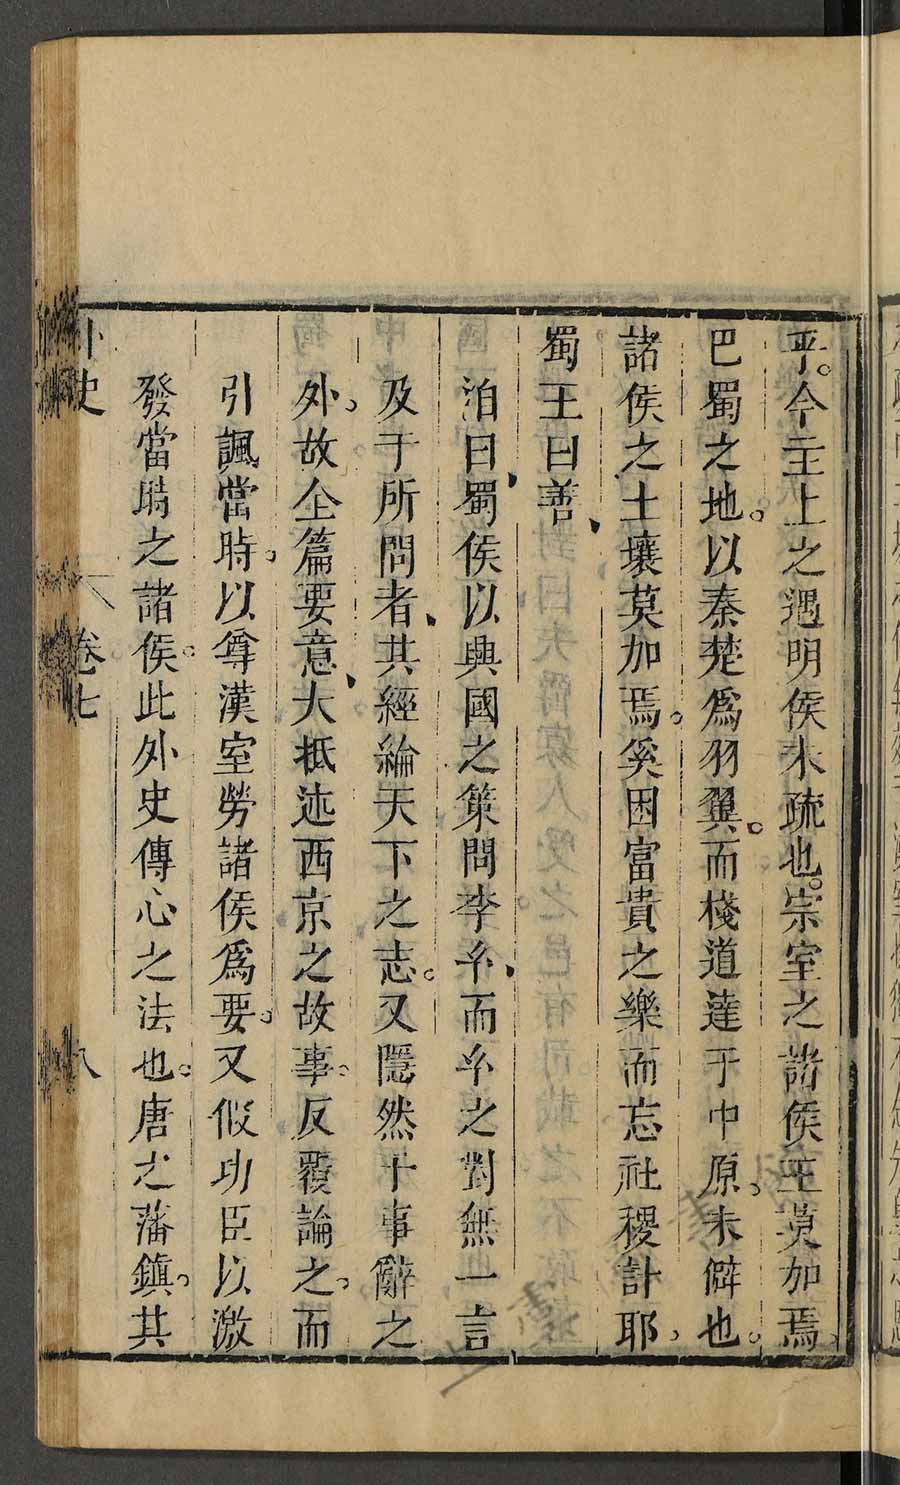 乎。今主上之遇明侯未疏也。宗室之諸侯王莫加焉。
巴蜀之地。以秦楚爲羽翼。而棧道達于中原。未僻也。
諸侯之土壤莫加焉。奚困富貴之樂而忘社稷計耶。
蜀王曰善、
洎曰、蜀侯以興國之策問李厶、而厶之對無一言
及于所問者、其經綸天下之志。又隱然于事辭之
外。故仝篇要意、大抵述西京之故事。反覆論之。而
引諷當時。以尊漢室勞諸侯爲要。又假功臣以激
發當時之諸侯。此外史傳心之法也。唐之藩鎮。其
外史
卷七
八